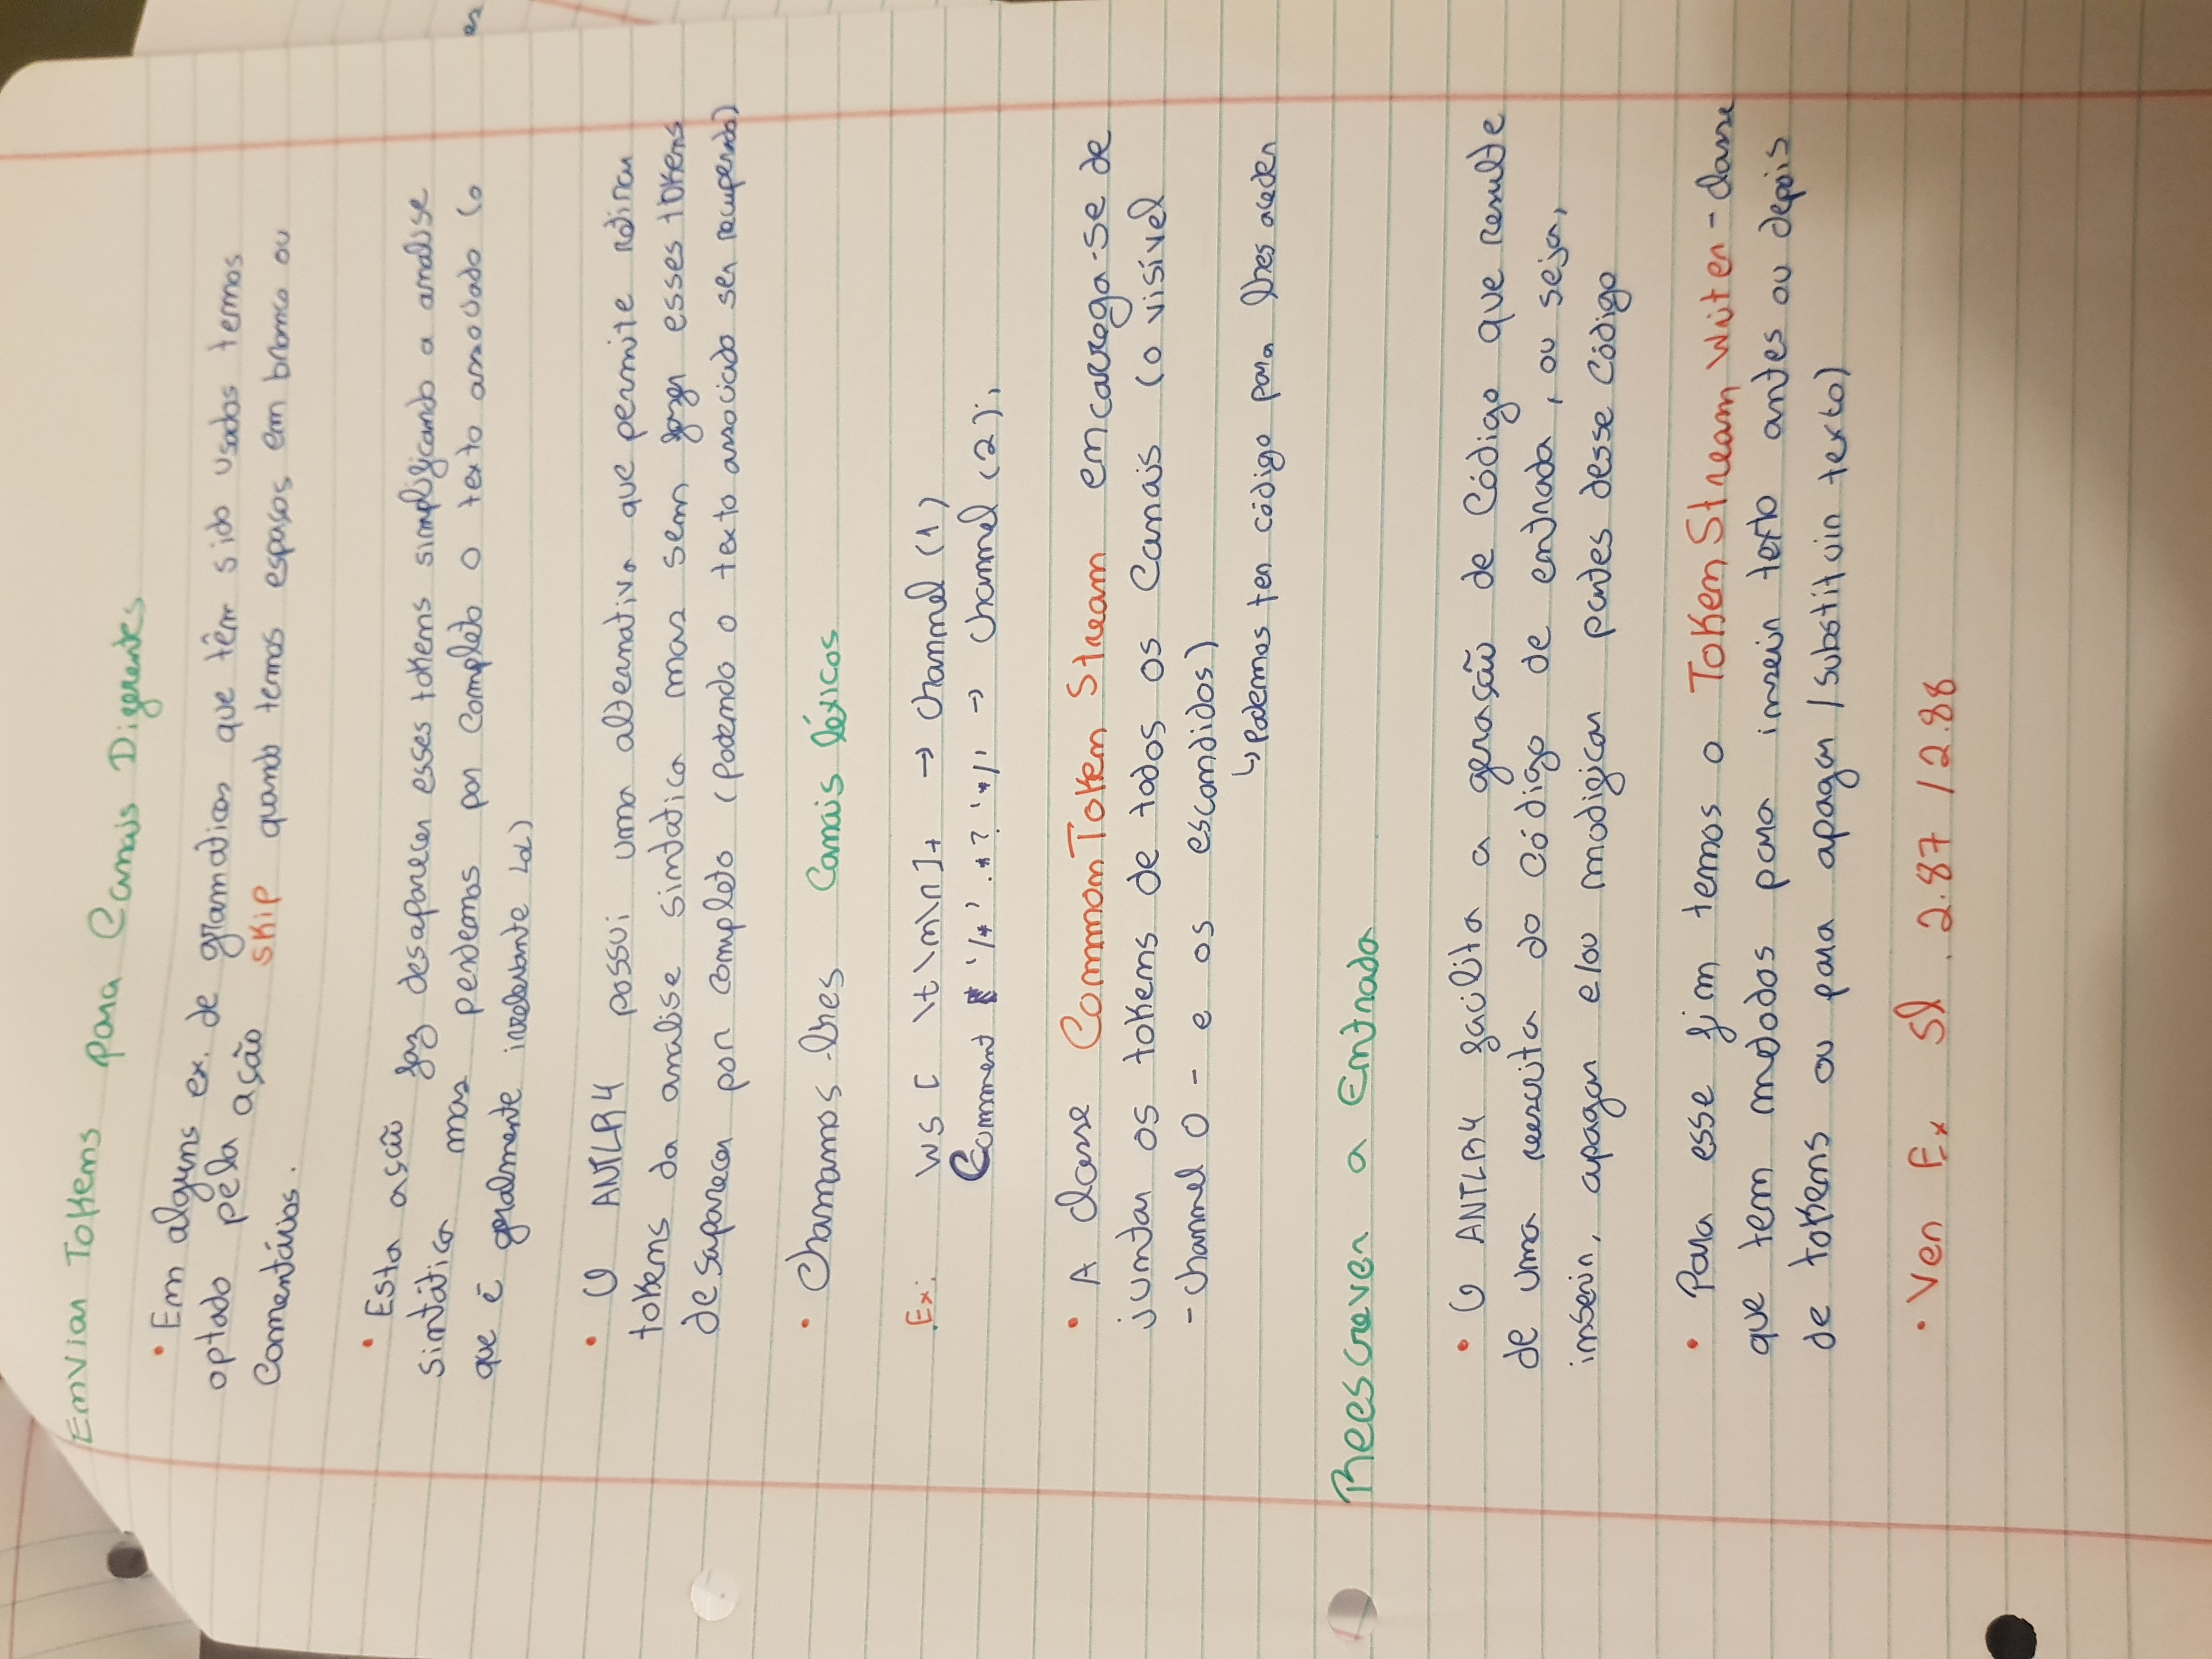 Enviar Tokens para Canais Diferentes
• Em alguns ex. de gramaticas que têm sido usados temos
optado pela ação skip quando temos espaços em branco ou
Comentários.
• Esta ação faz desaparecer esses tokens simplificando a analise
sintática mas perdemos por completo o texto associado (o
que é geralmente irrelevante lol)
• O ANTLR4 possui uma alternativa que permite retirar
tokens da analise sintatica mas sem fazer esses tokens
desaparecer por completo (podendo o texto associado ser recuperado)
• Chamamos-lhes Canais léxicos
Ex: WS [ \t\n\r]+ → channel (1)
Comment '/*' .*? '*/' → channel (2);
• A classe CommonTokenStream encarrega-se de
juntar os tokens de todos os Canais (o visível
- channel 0 - e os escondidos)
↳ Podemos ter código para lhes aceder
Reescrever a Entrada
• O ANTLR4 facilita a geração de Código que resulte
de uma reescrita do código de entrada, ou seja,
inserir, apagar e/ou modificar partes desse Código
• Para esse fim temos o TokenStreamWriter - classe
que tem metodos para inserir texto antes ou depois
de tokens ou para apagar / substituir texto)
• Ver Ex Sl . 2.87 / 2.88